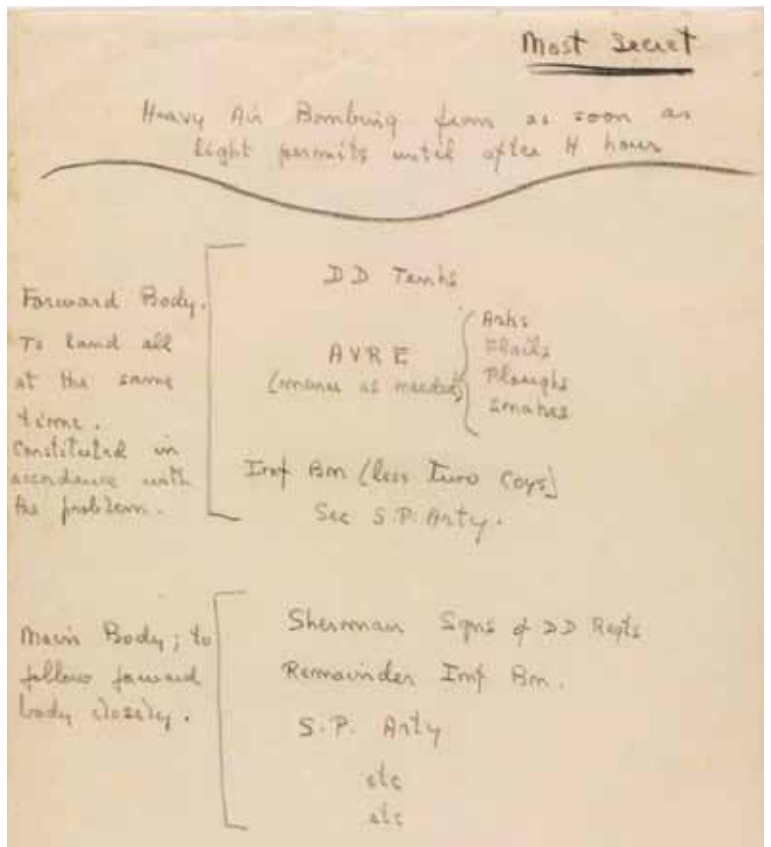 Most Secret
Heavy Air Bombing from as soon as
light permits until after H hour
Forward Body.
To land all
at the same
time.
Constituted in
accordance with
the problem.
DD Tanks
AVRE
(manus as needed)
Arks
Flails
Ploughs
Snakes
Inf Bn (less Two Coys)
Sec S.P. Arty.
Main Body; to
follow forward
body closely.
Sherman Sqns of DD Regts
Remainder Inf Bn.
S.P. Arty
etc
etc